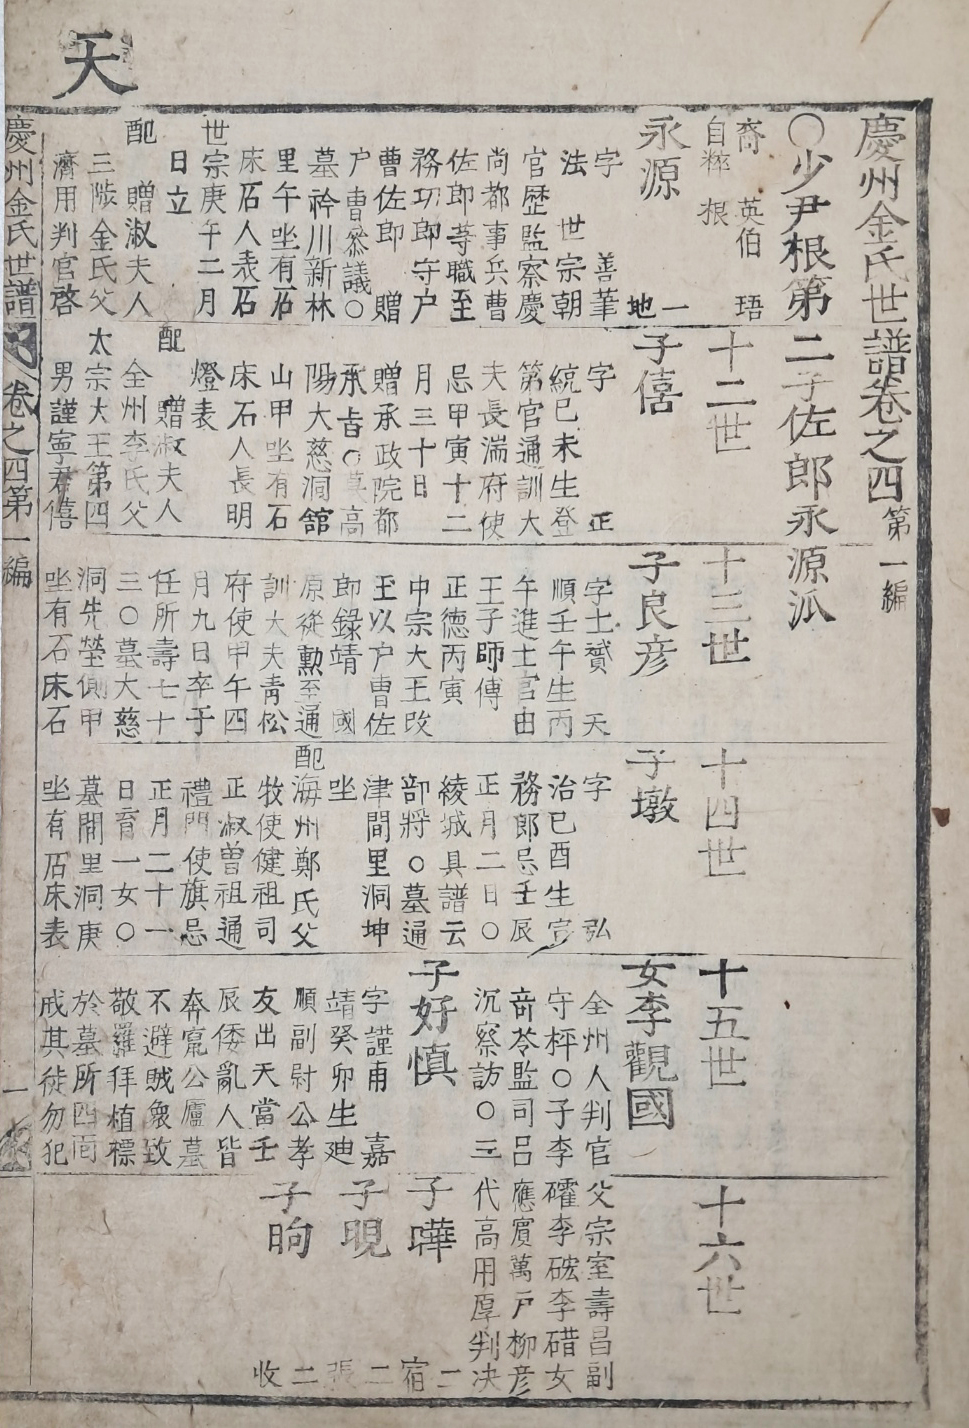 天
慶州金氏世譜卷之四 第一編
○少尹根第二子佐郎永源派
裔 英伯 珸
自粹 根
永源 一地
字 善筆
法 世宗朝
官歷監察慶
尚都事兵曹
佐郎等職至
務功郎守户
曹佐郎 贈
户曹參議○
墓衿川新林
里午坐有石
床石人表石
世宗庚午二月
日立
配 贈淑夫人
三陟金氏父
濟用判官啓
十二世
子僖
字 正
統己未生登
第官通訓大
夫長湍府使
忌甲寅十二
月三十日
贈承政院都
承旨○墓高
陽大慈洞舘
山甲坐有石
床石人長明
燈表
配 贈淑夫人
全州李氏父
太宗大王第四
男謹寧君僖
十三世
子良彦
字士贇 天
順壬午生丙
午進士官由
王子師傅
正德丙寅
中宗大王改
王以户曹佐
郎錄靖 國
原從勲至通
訓大夫青松
府使甲午四
月九日卒于
任所壽七十
三○墓大慈
洞先塋側甲
坐有石床石
十四世
子墩
字 弘
治己酉生宣
務郎忌壬辰
正月二日○
綾城具譜云
部將○墓通
津間里洞坤
坐
配海州鄭氏父
牧使健祖司
正淑曽祖通
禮門使旗忌
正月二十一
日育一女○
墓開里洞庚
坐有石床表
十五世
女李觀國
全州人判官父宗室壽昌副
守枰○子李礭李硡李碏女
竒苓監司呂應賓萬戶柳彦
沉察訪○三代高用厚判决
子好慎
字謹甫 嘉
靖癸卯生廸
順副尉公孝
友出天當壬
辰倭亂人皆
奔竄公廬墓
不避賊衆致
敬羅拜植標
於墓所四面
戒其徒勿犯
十六世
子曄 二宿
子晛 二張
子晌 二收
慶州金氏世譜 卷之四第一編 一